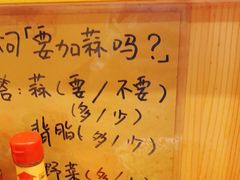 问「要加蒜吗?」
答:蒜(要/不要)
(多/少)
背脂(多/少)
野菜(多/少)